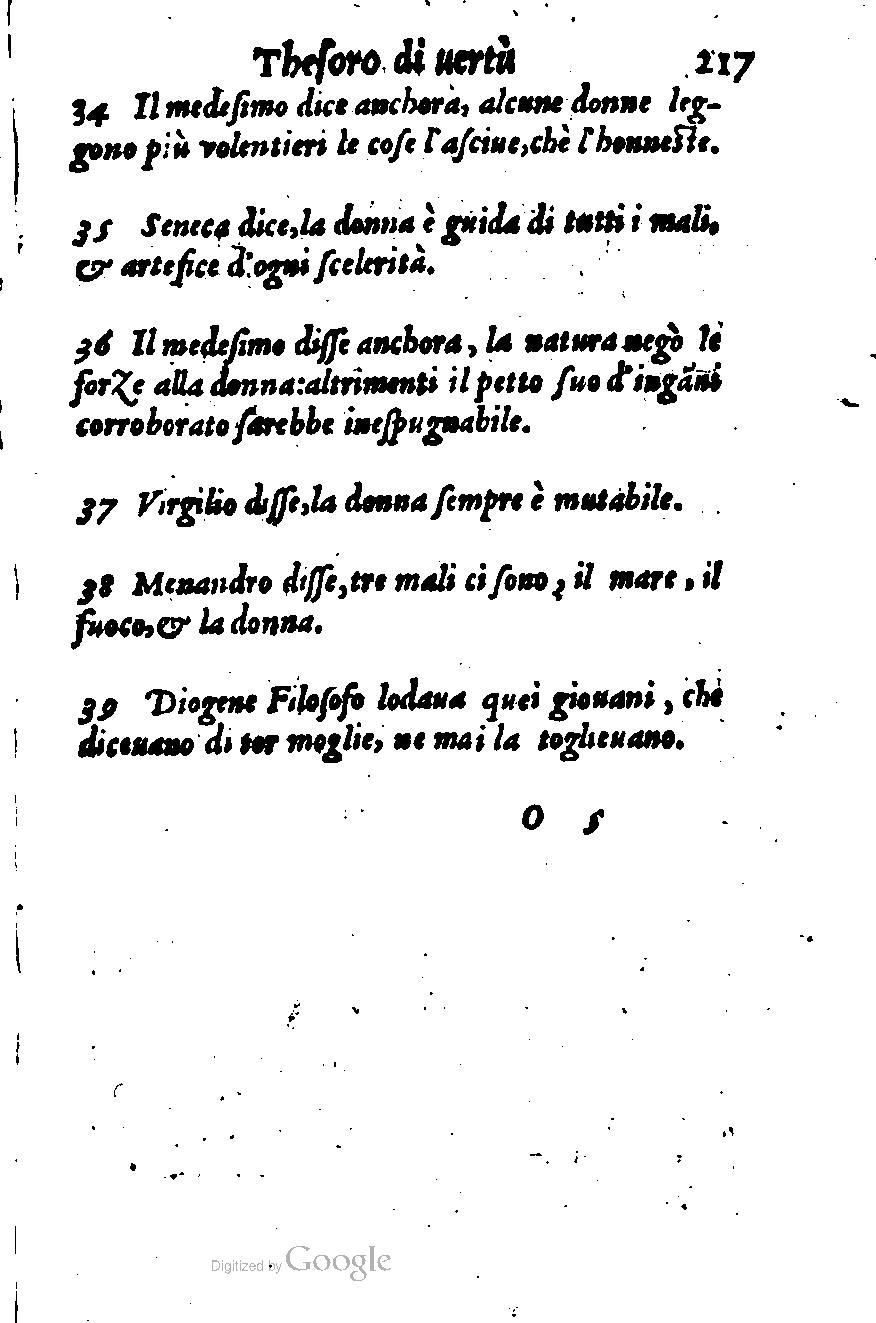 Theſoro di uertù 217
34 Il medeſimo dice anchora, alcune donne leg-
gono più volentieri le coſe laſciue,chè l'honneſte.
35 Seneca dice,la donna è guida di tutti i mali,
& artefice d'ogni ſcelerità.
36 Il medeſimo diſſe anchora, la natura negò le
forZe alla donna:altrimenti il petto ſuo d'ingāni
corroborato ſarebbe ineſpugnabile.
37 Virgilio diſſe,la donna ſempre è mutabile.
38 Menandro diſſe,tre mali ci ſono, il mare, il
fuoco,& la donna.
39 Diogene Filoſofo lodaua quei giouani, chè
diceuano di tor moglie, ne mai la toglieuano.
O 5
Digitized by Google